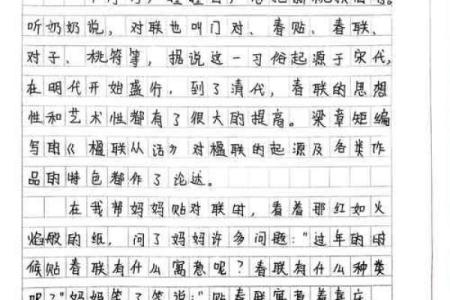 听奶奶说,对联也叫门对、春贴、春联、
对子、桃符等,据说这一习俗起源于宋代,
在明代开始盛行,到了清代,春联的思想
性和艺术性都有了很大的提高。梁章矩编
写的《楹联丛话》对楹联的起源及各类作
品的特色都作了论述。
在我帮妈妈贴对联时,看着那红如火
焰般的纸,问了妈妈许多问题:"过年的时
候贴春联有什么寓意呢?春联有什么种类
呢?"妈妈笑了笑说:"贴春联寓意着喜庆